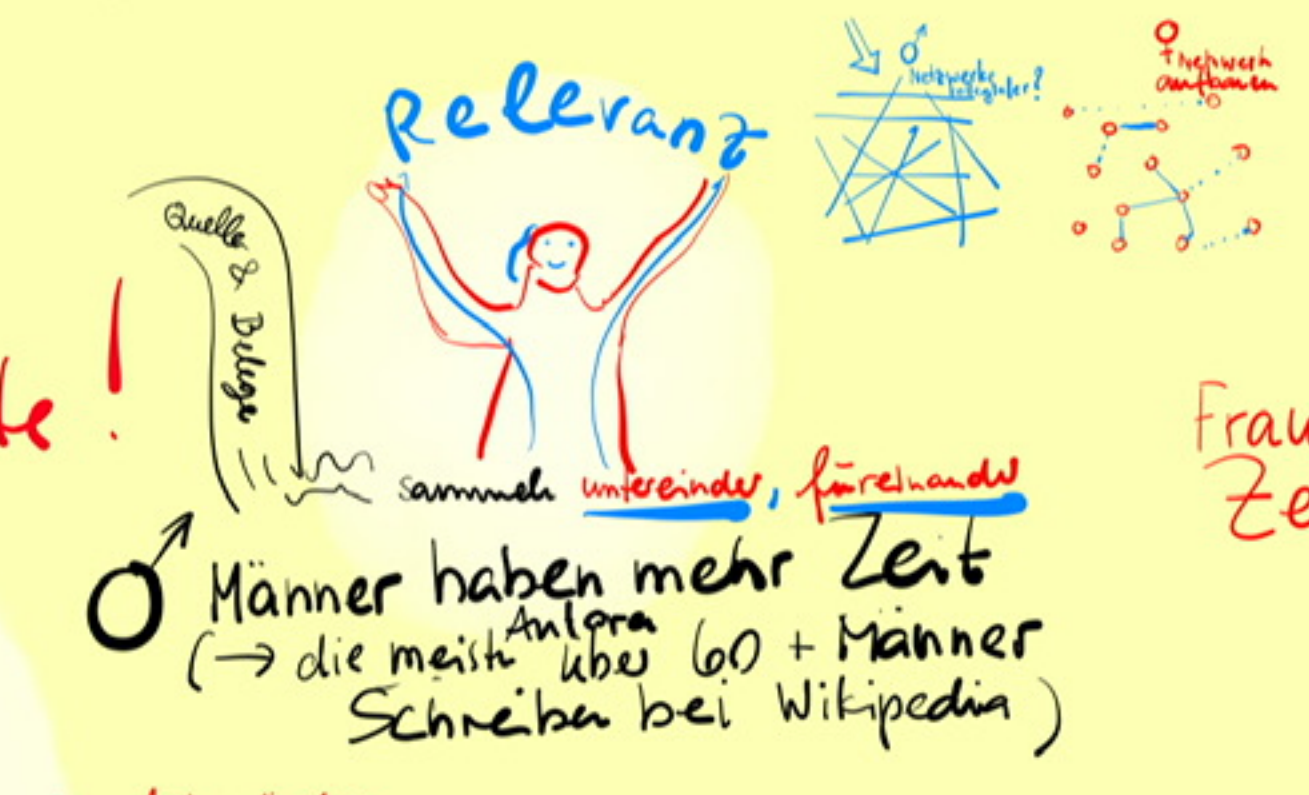 Relevanz
♂
Netzwerke
?
♀
Netzwerk
aufbauen
Quelle & Belege
te!
sammeln untereinder, füreinander
Frau
Ze
♂ Männer haben mehr Zeit
Autoren
(→ die meisten über 60 + Männer
Schreiben bei Wikipedia)